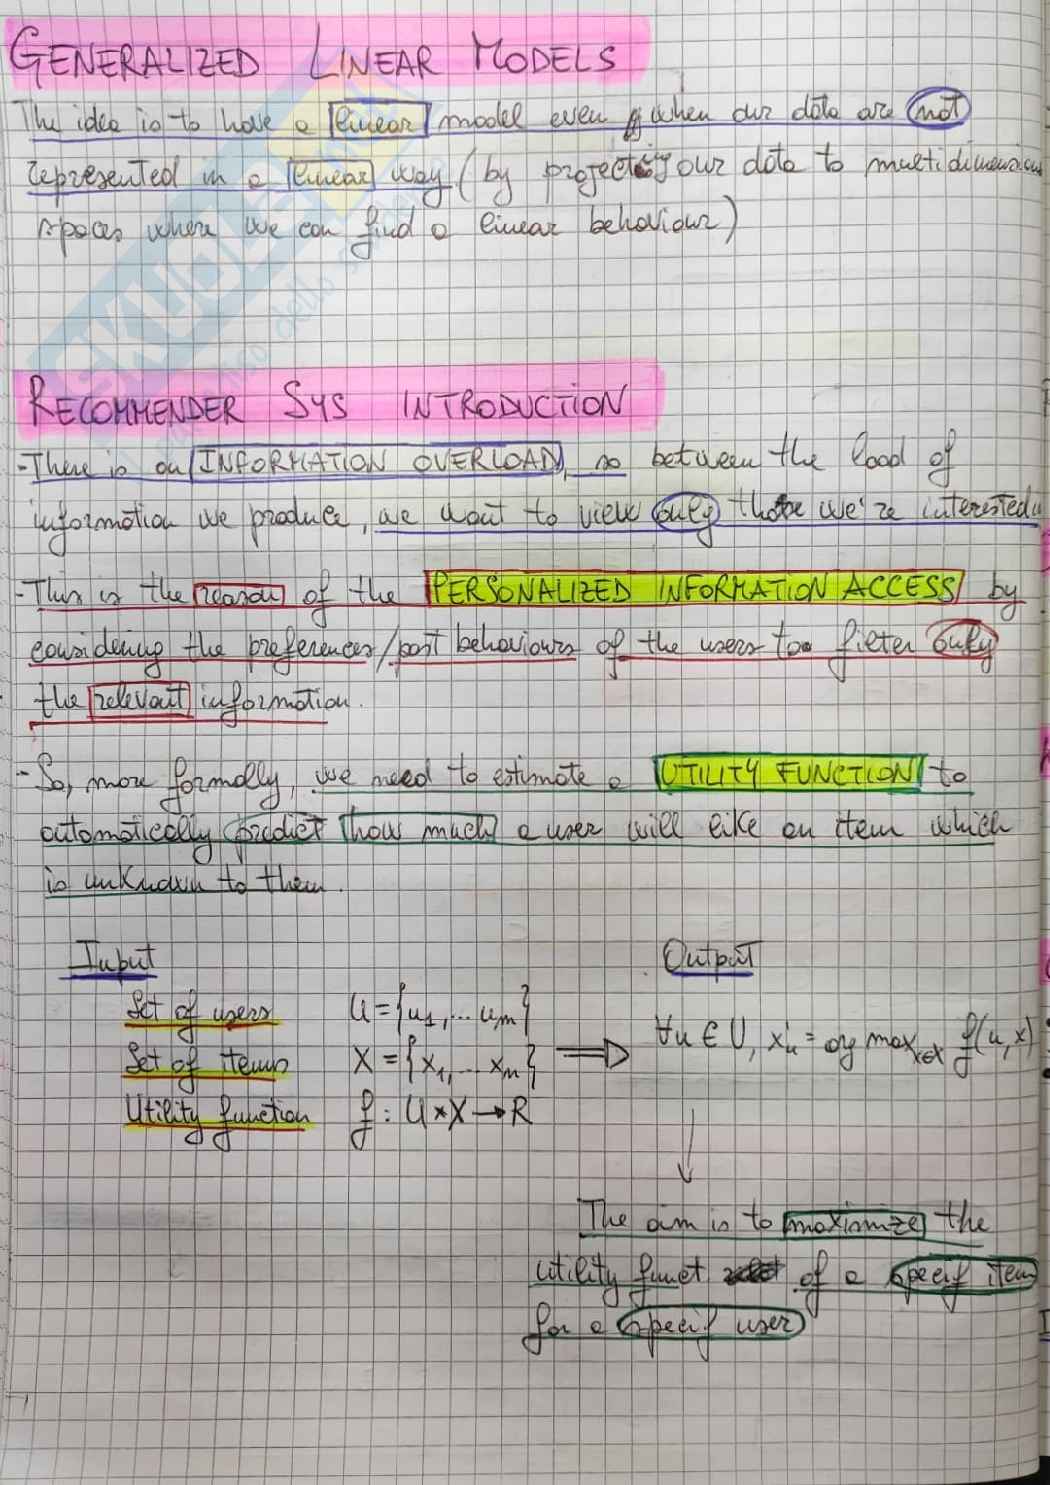 GENERALIZED LINEAR MODELS
The idea is to have a linear model even when our data are not
represented in a linear way (by projecting our data to multidimension
spaces where we can find a linear behaviour)
RECOMMENDER SYS INTRODUCTION
- There is an INFORMATION OVERLOAD, so between the load of
information we produce, we want to view only those we're interested
- This is the reason of the PERSONALIZED INFORMATION ACCESS by
considering the preferences/past behaviours of the users to filter only
the relevant information.
- So, more formally, we need to estimate a UTILITY FUNCTION to
automatically predict how much a user will like an item which
is unknown to them.
Input Output
Set of users U = {u1, ... um}
Set of items X = {x1, ... xn} ⇒ ∀u ∈ U, x'u = arg max x∈X f(u, x)
Utility function f : U * X → R
↓
The aim is to maximize the
utility funct of a specif item
for a specif user
SKUOLA